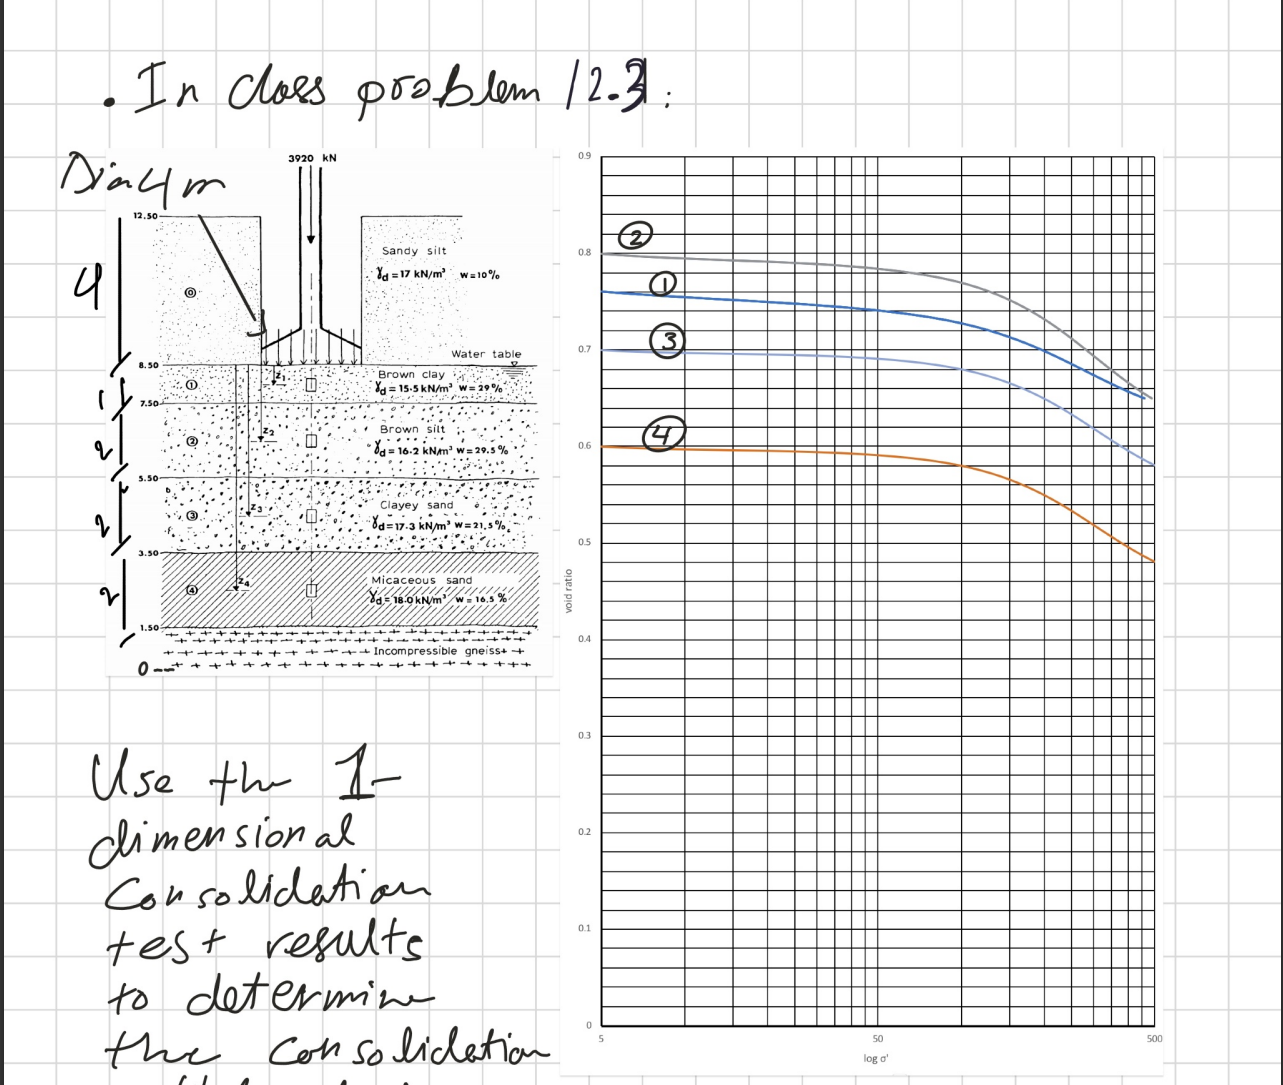 . In class problem 12.3:
Dia 4 m
3920 kN
12.50
Sandy silt
γd = 17 kN/m³ w = 10%
4
⓪
Water table
8.50
z1
Brown clay
①
γd = 15.5 kN/m³ w = 29%
1
7.50
Brown silt
②
z2
γd = 16.2 kN/m³ w = 29.5%
2
5.50
z3
Clayey sand
③
γd = 17.3 kN/m³ w = 21.5%
2
3.50
Micaceous sand
④
z4
γd = 18.0 kN/m³ w = 16.5 %
2
1.50
Incompressible gneiss
0
0.9
0.8
0.7
0.6
0.5
0.4
0.3
0.2
0.1
0
void ratio
②
①
③
④
5
50
500
log σ'
Use the 1-
dimensional
Consolidation
test results
to determine
the consolidation